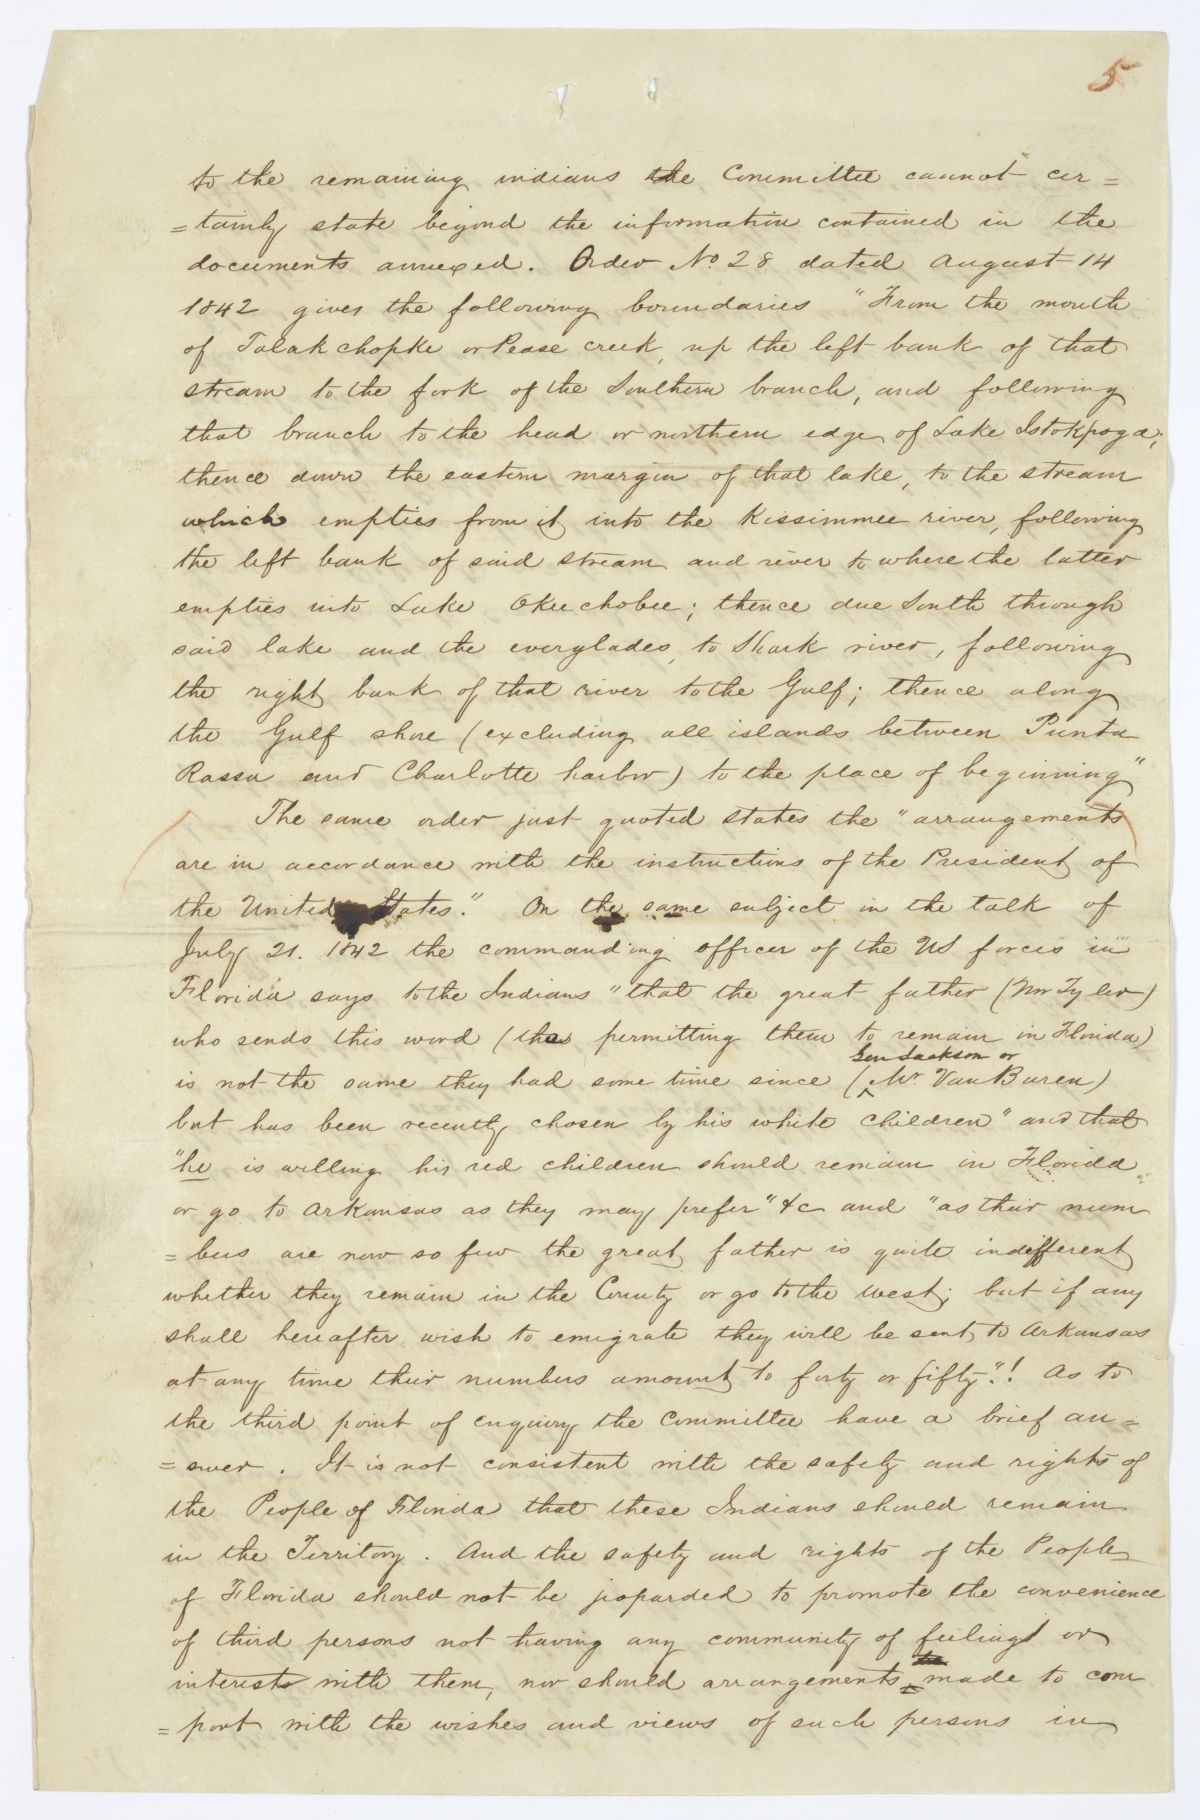 5
to the remaining indians the Committee cannot cer=
=tainly state beyond the information contained in the
documents annexed. Order No. 28 dated August 14
1842 gives the following boundaries "From the mouth
of Talakchopke or Pease creek, up the left bank of that
stream to the fork of the Southern branch, and following
that branch to the head or northern edge of Lake Istokpoga;
thence down the eastern margin of that lake, to the stream
which empties from it into the Kissimmee river, following
the left bank of said stream and river to where the latter
empties into Lake Okeechobee; thence due South through
said lake and the everglades, to Shark river, following
the right bank of that river to the Gulf; thence along
the Gulf shore (excluding all islands between Punta
Rassa and Charlotte harbor) to the place of beginning"
The same order just quoted states the "arrangements
are in accordance with the instructions of the President of
the United States." On the same subject in the talk of
July 21. 1842 the commanding officer of the US forces in
Florida says to the Indians "that the great father (Mr Tyler)
who sends this word (the permitting them to remain in Florida)
Gen Jackson or
is not the same they had some time since (Mr Van Buren)
but has been recently chosen by his white children" and that
"he is willing his red children should remain in Florida
or go to Arkansas as they may prefer" &c and "as their num
=bers are now so few the great father is quite indefferent
whether they remain in the County or go to the west; but if any
shall hereafter wish to emigrate they will be sent to Arkansas
at any time their numbers amount to forty or fifty."! As to
the third point of enquiry the Committee have a brief an=
=swer. It is not consistent with the safety and rights of
the People of Florida that these Indians should remain
in the Territory. And the safety and rights of the People
of Florida should not be joparded to promote the convenience
of third persons not having any community of feelings or
interests with them, nor should arrangements made to com
=port with the wishes and views of such persons in